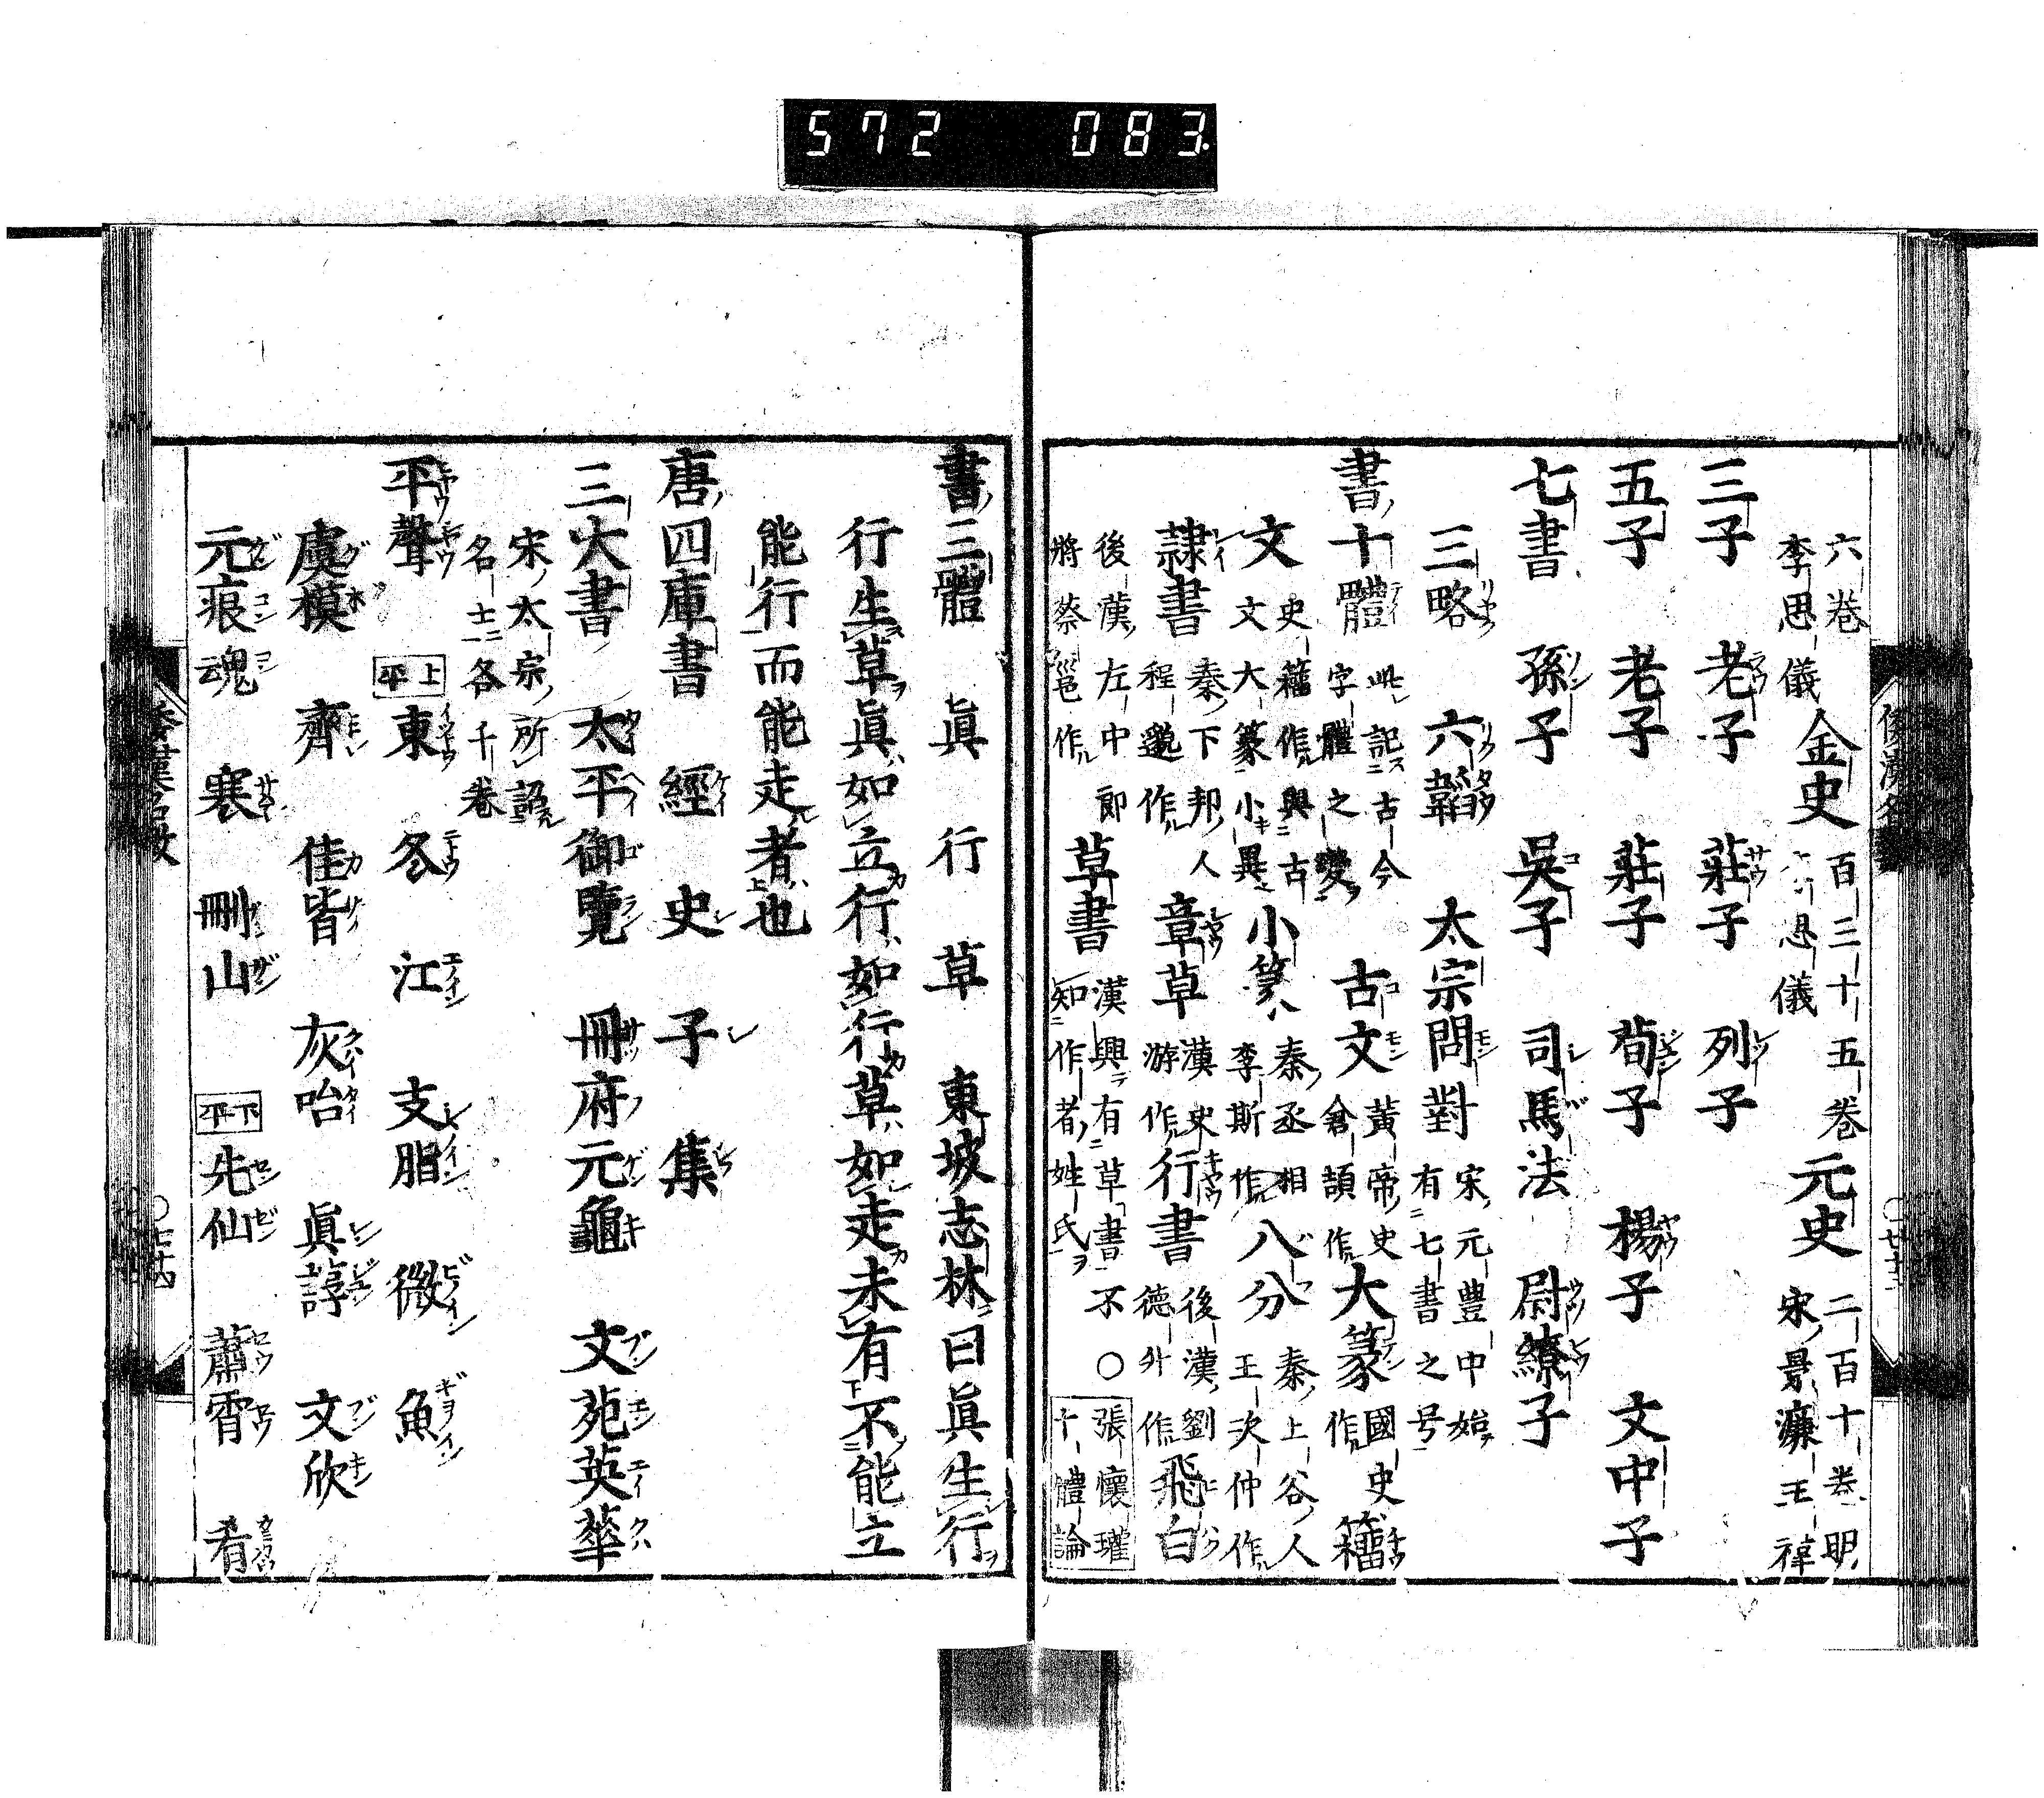 572 083
六巻 李思儀 金史 百三十五巻 思儀 元史 二百十巻明 宋景濂王禕
三子 老子 莊子 列子
五子 老子 莊子 荀子 楊子 文中子
七書 孫子 吳子 司馬法 尉繚子
三略 六韜 太宗問對 宋元豊中始 有七書之号
書十體 此記古今 字體之變 古文 黃帝史 倉頡作 大篆 國史 作 籀
文 史籀作與古 文大篆小異 小篆 秦丞相 李斯作 八分 秦上谷人 王次仲作
隷書 秦下邦人 程邈作 章草 漢史 游作 行書 後漢劉 德外作 飛白
後漢左中郎 將蔡邕作 草書 漢興有草書不 知作者姓氏 ○ 張懷瓘 十體論
書三體 眞 行 草 東坡志林曰眞生行
行生草眞如立行如行草如走未有不能立
能行而能走者也
唐四庫書 經 史 子 集
三大書 太平御覽 冊府元龜 文苑英華
宋太宗所詔
名士各千巻
平聲 上平 東 冬 江 支脂 微 魚
虞模 齊 佳皆 灰咍 眞諄 文欣
元痕魂 寒 刪山 下平 先仙 蕭宵 肴